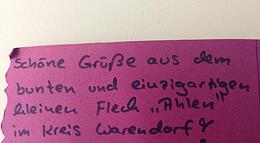 Schöne Grüße aus dem
bunten und einzigartigen
kleinen Fleck „Ahlen"
im Kreis Warendorf